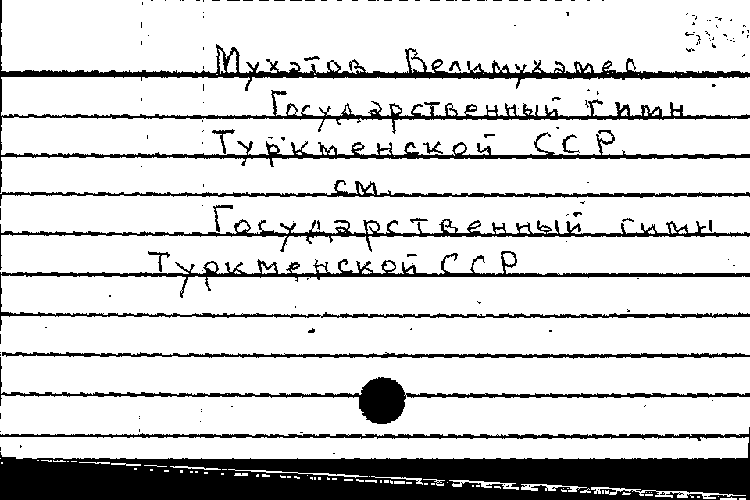 Мухатов Велимухамед
Государственный гимн
Туркменской ССР.
см.
Государственный гимн
Туркменской ССР